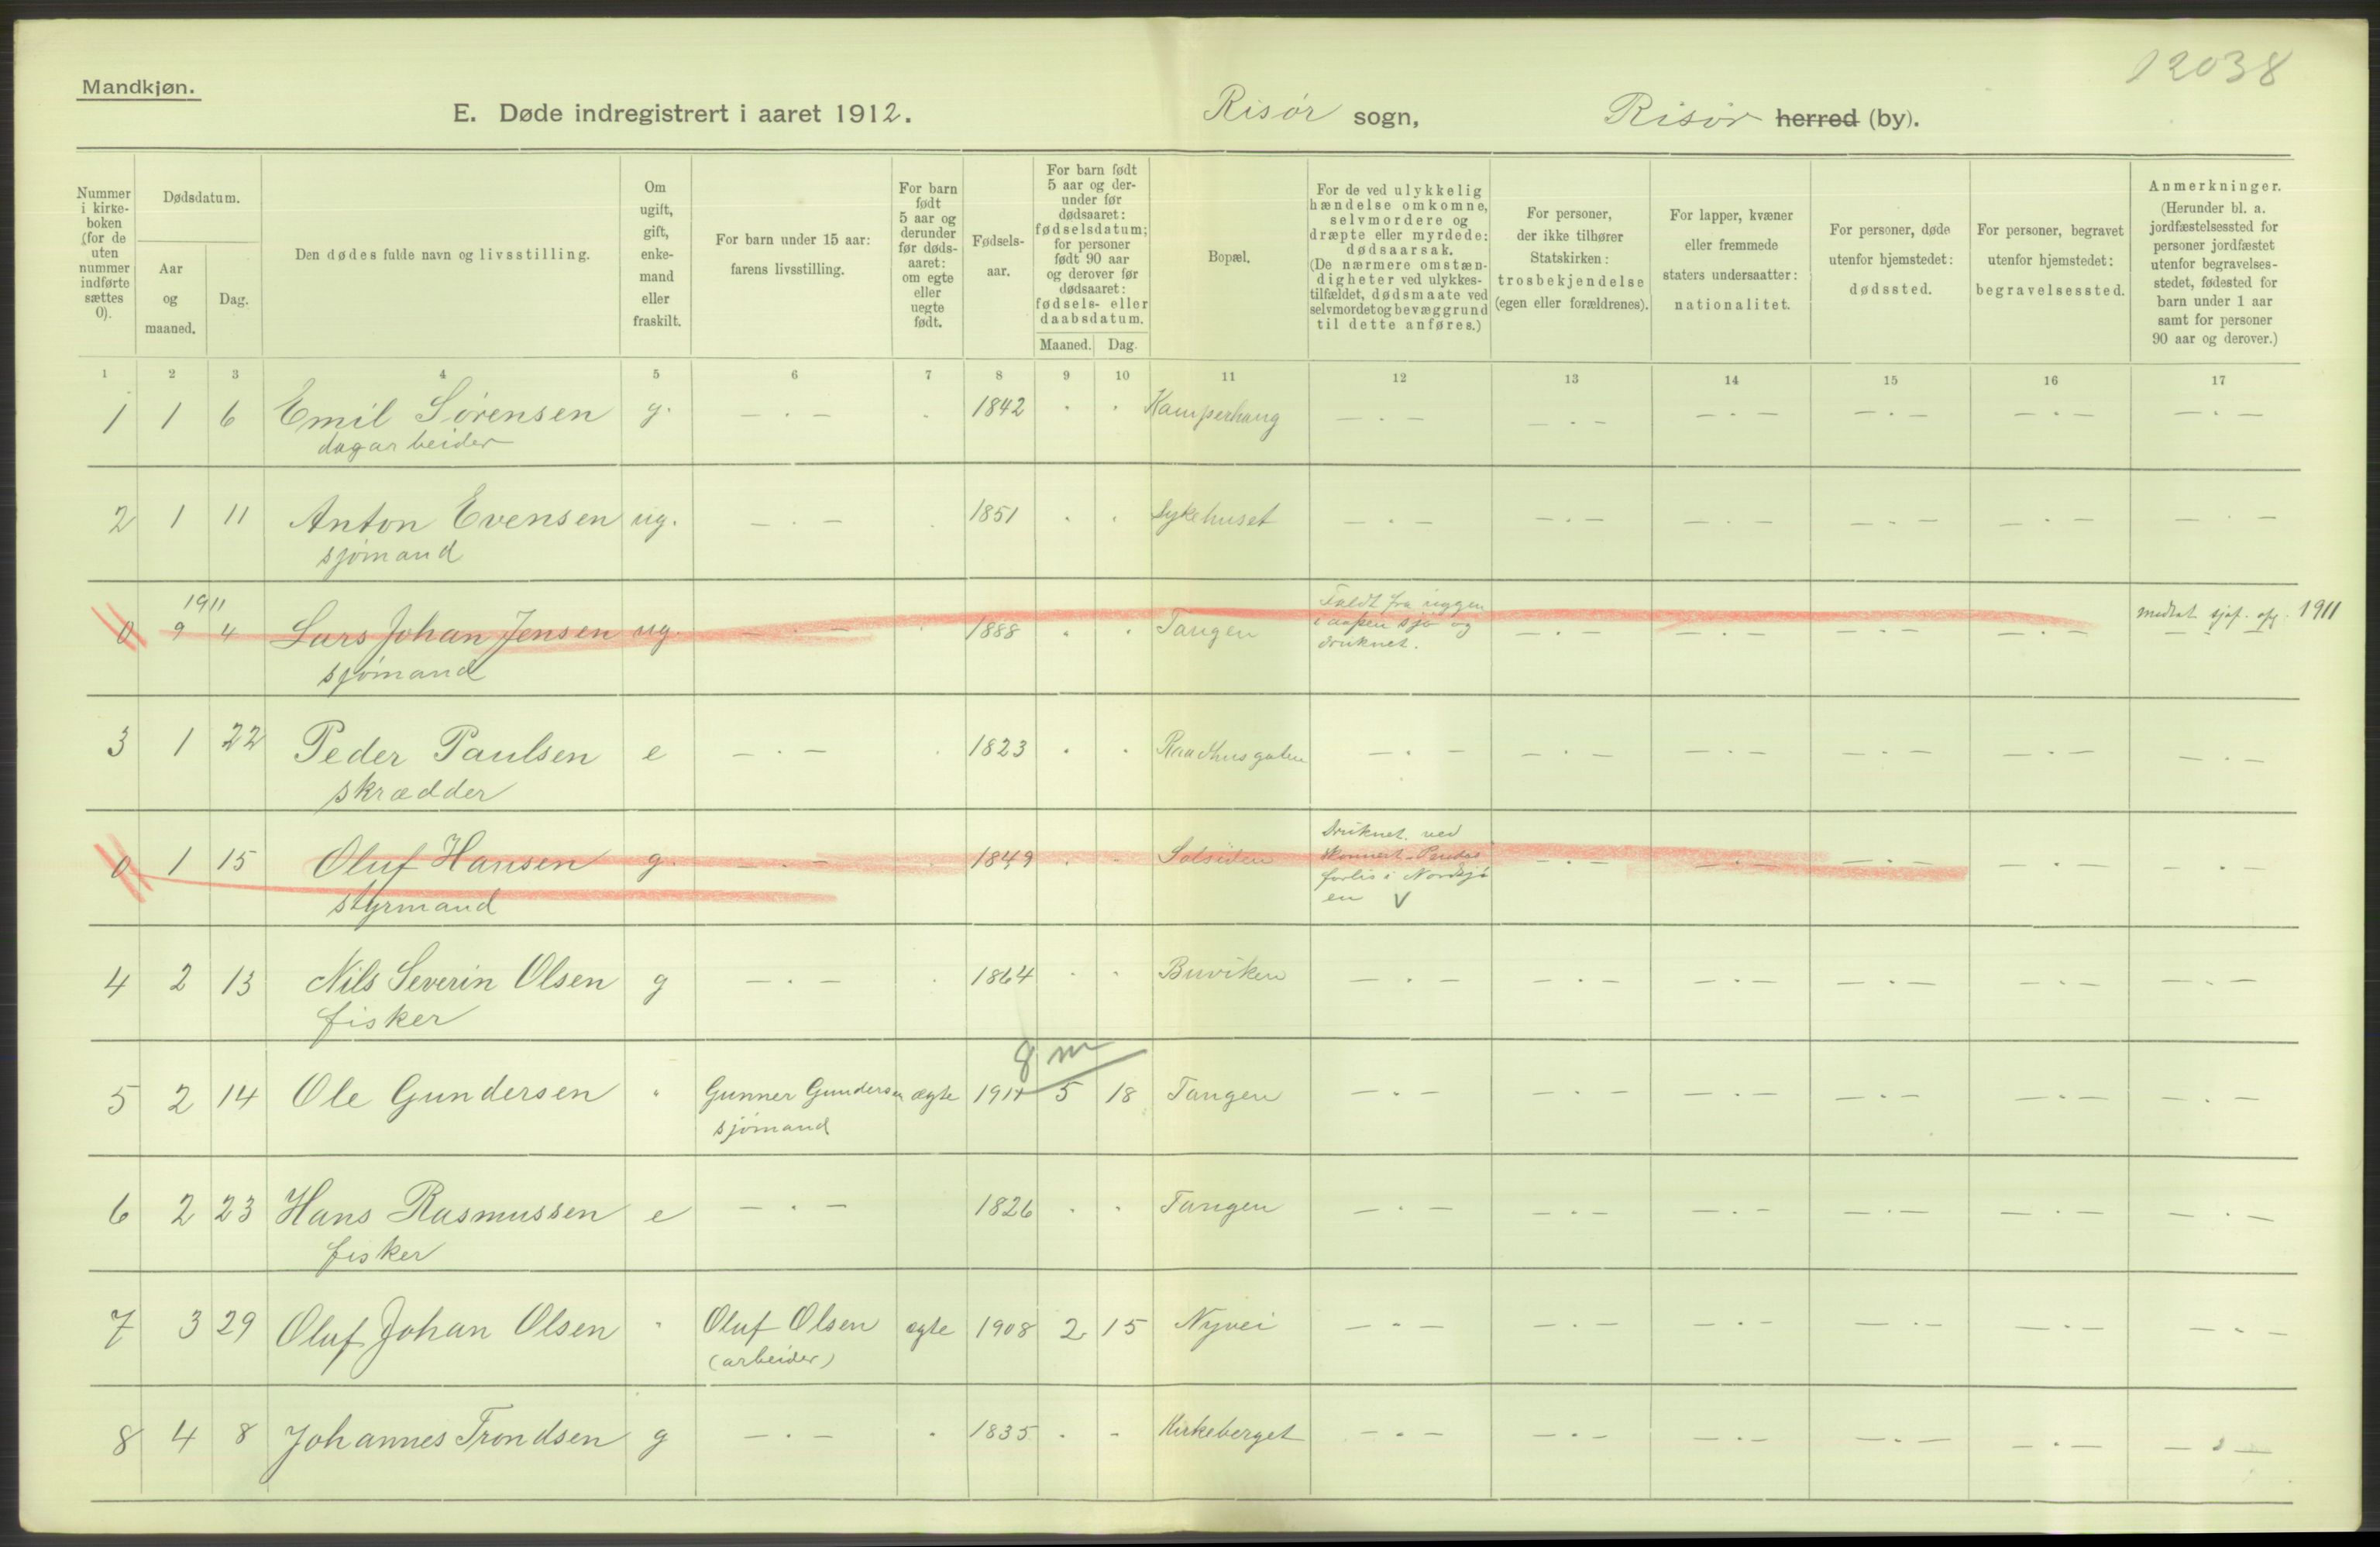 12038
Mandkjøn.
E. Døde indregistrert i aaret 1912.
Risør sogn,
Risør herred (by).
Nummer i kirke-boken (for de uten nummer indførte sættes 0).
Dødsdatum.
Aar og maaned.
Dag.
Den dødes fulde navn og livsstilling.
Om ugift, gift, enke-mand eller fraskilt.
For barn under 15 aar: farens livsstilling.
For barn født 5 aar og derunder før døds-aaret: om egte eller uegte født.
Fødsels-aar.
For barn født 5 aar og der-under før dødsaaret: fødselsdatum; for personer født 90 aar og derover før dødsaaret: fødsels- eller daabsdatum.
Maaned. Dag.
Bopæl.
For de ved ulykkelig hændelse omkomne, selvmordere og dræpte eller myrdede: dødsaarsak. (De nærmere omstæn-digheter ved ulykkes-tilfældet, dødsmaate ved selvmordet og bevæggrund til dette anføres.)
For personer, der ikke tilhører Statskirken: trosbekjendelse (egen eller forældrenes).
For lapper, kvæner eller fremmede staters undersaatter: nationalitet.
For personer, døde utenfor hjemstedet: dødssted.
For personer, begravet utenfor hjemstedet: begravelsessted.
Anmerkninger. (Herunder bl. a. jordfæstelsessted for personer jordfæstet utenfor begravelses-stedet, fødested for barn under 1 aar samt for personer 90 aar og derover.)
1 2 3 4 5 6 7 8 9 10 11 12 13 14 15 16 17
1 1 6 Emil Sørensen g. — . — . 1842 . . Kamperhaug — . — — . — — . — — . — — . — — . —
dagarbeider
2 1 11 Anton Evensen ug. — . — . 1851 . . Sykehuset — . — — . — — . — — . — — . — — . —
sjømand
1911
0 9 4 Lars Johan Jensen ug. — . — . 1888 . . Tangen Faldt fra riggen i aapen sjø og druknet. — . — — . — — . — — . — 1911
sjømand
3 1 22 Peder Paulsen e — . — . 1823 . . Raadhusgaten — . — — . — — . — — . — — . — — . —
skrædder
0 1 15 Oluf Hansen g. — . — . 1849 . . Solsiden Druknet ved forlis i Nordsjøen V — . — — . — — . — — . — — . —
styrmand
4 2 13 Nils Severin Olsen g — . — . 1864 . . Buviken — . — — . — — . — — . — — . — — . —
fisker
8 m
5 2 14 Ole Gundersen " Gunner Gundersen ægte 1911 5 18 Tangen — . — — . — — . — — . — — . — — . —
sjømand
6 2 23 Hans Rasmussen e — . — 1826 . . Tangen — . — — . — — . — — . — — . — — . —
fisker
7 3 29 Oluf Johan Olsen " Oluf Olsen ægte 1908 2 15 Nyvei — . — — . — — . — — . — — . — — . —
(arbeider)
8 4 8 Johannes Trondsen g — . — . 1835 . - Kirkeberget — . — — . — — . — — . — — . — — . —